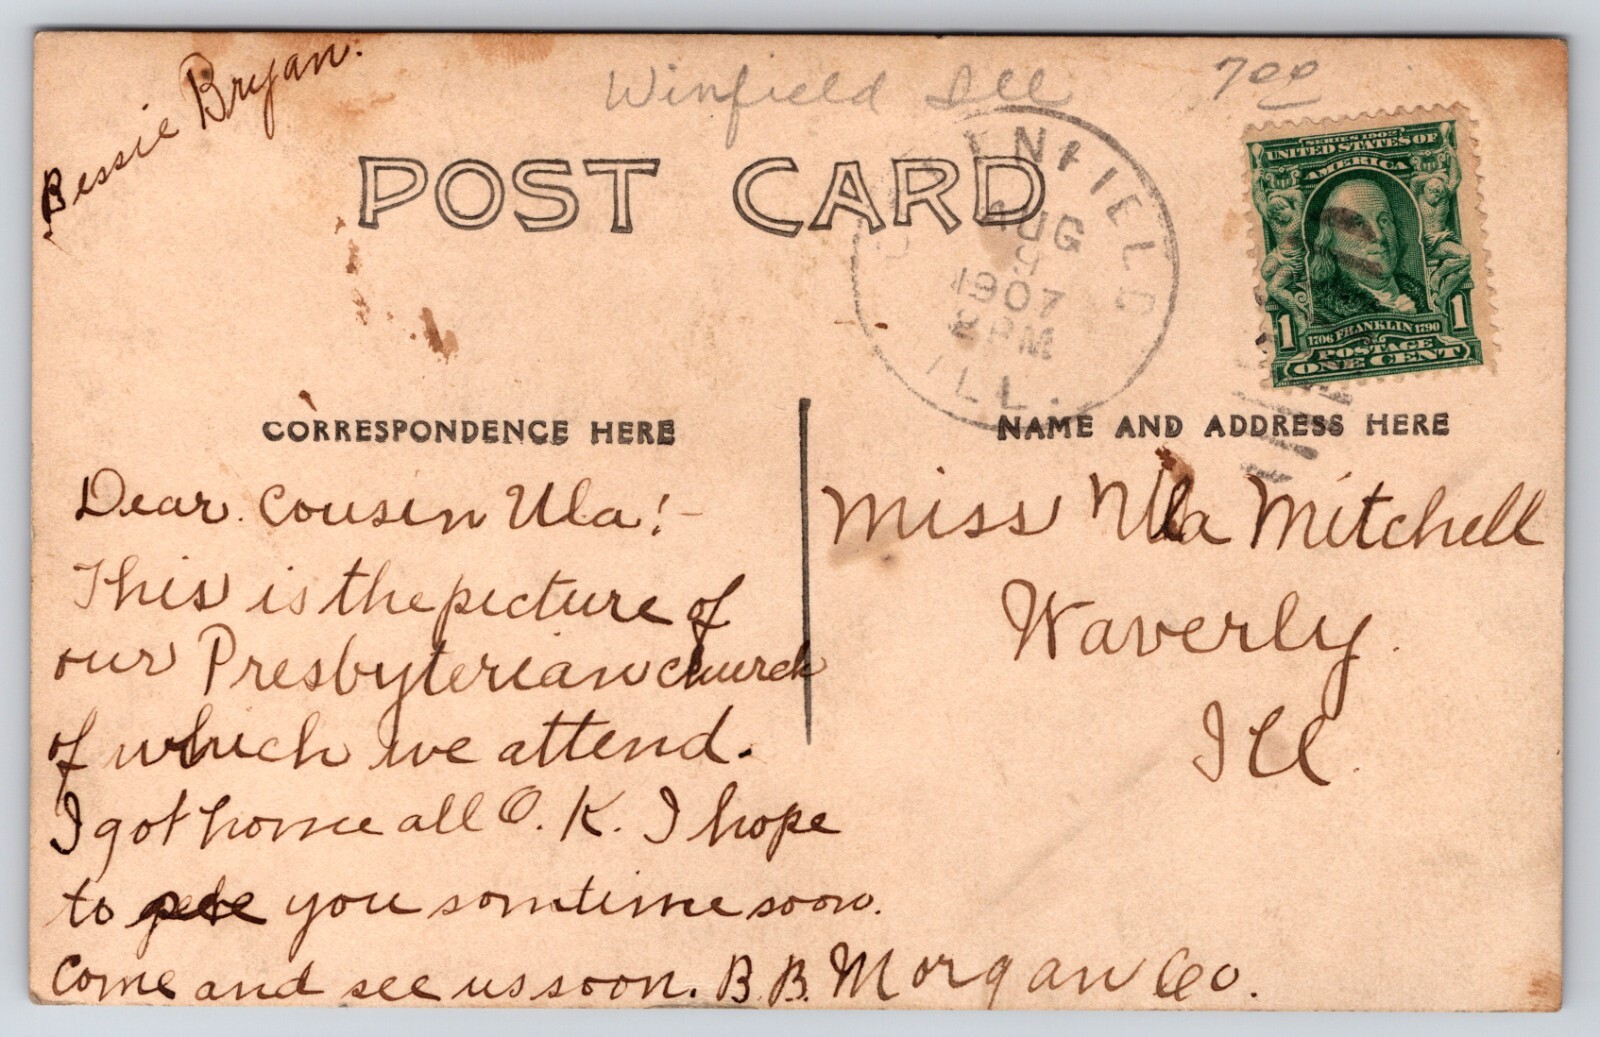 Bessie Bryan.
Winfield Ill
700
POST CARD
ENFIELD
AUG
1907
2 PM
ILL.
SERIES 1902
UNITED STATES OF
AMERICA
1706 FRANKLIN 1790
1 1
POSTAGE
ONE CENT
CORRESPONDENCE HERE
NAME AND ADDRESS HERE
Dear Cousin Ula!-
This is the picture of
our Presbyterian church
of which we attend.
I got home all O.K. I hope
to you somtime soon.
Come and see us soon. B.B.
Miss Ula Mitchell
Waverly.
Ill.
Morgan Co.